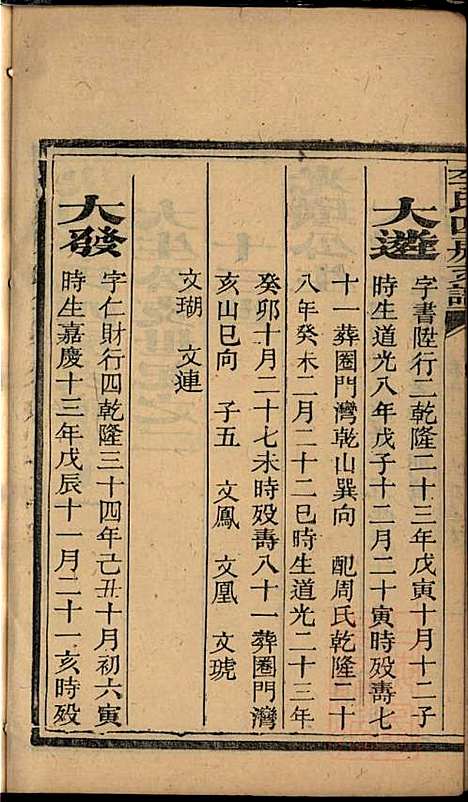 李氏四房支譜
大遊
字書陞行二乾隆二十三年戊寅十月十二子
時生道光八年戊子十二月二十寅時殁壽七
十一葬圈門灣乾山巽向 配周氏乾隆二十
八年癸未二月二十二巳時生道光二十三年
癸卯十月二十七未時殁壽八十一葬圈門灣
亥山巳向 子五 文鳳 文凰 文琥
文瑚 文連
大發
字仁財行四乾隆三十四年己丑十月初六寅
時生嘉慶十三年戊辰十一月二十一亥時殁